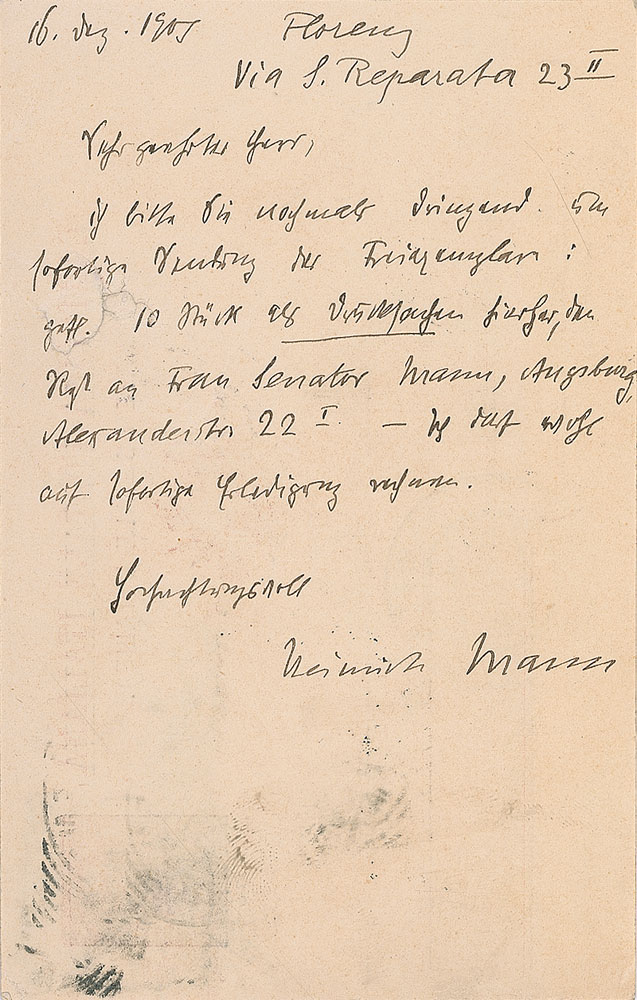 16. Dez. 1905 Florenz
Via S. Reparata 23 II
Sehr geehrter Herr,
ich bitte Sie nochmals dringend um
sofortige Sendung der Freiexemplare:
gefl. 10 Stück als Drucksachen hierher, den
Rest an Frau Senator Mann, Augsburg,
Alexanderstr. 22 I. – Ich darf wohl
auf sofortige Erledigung rechnen.
Hochachtungsvoll
Heinrich Mann